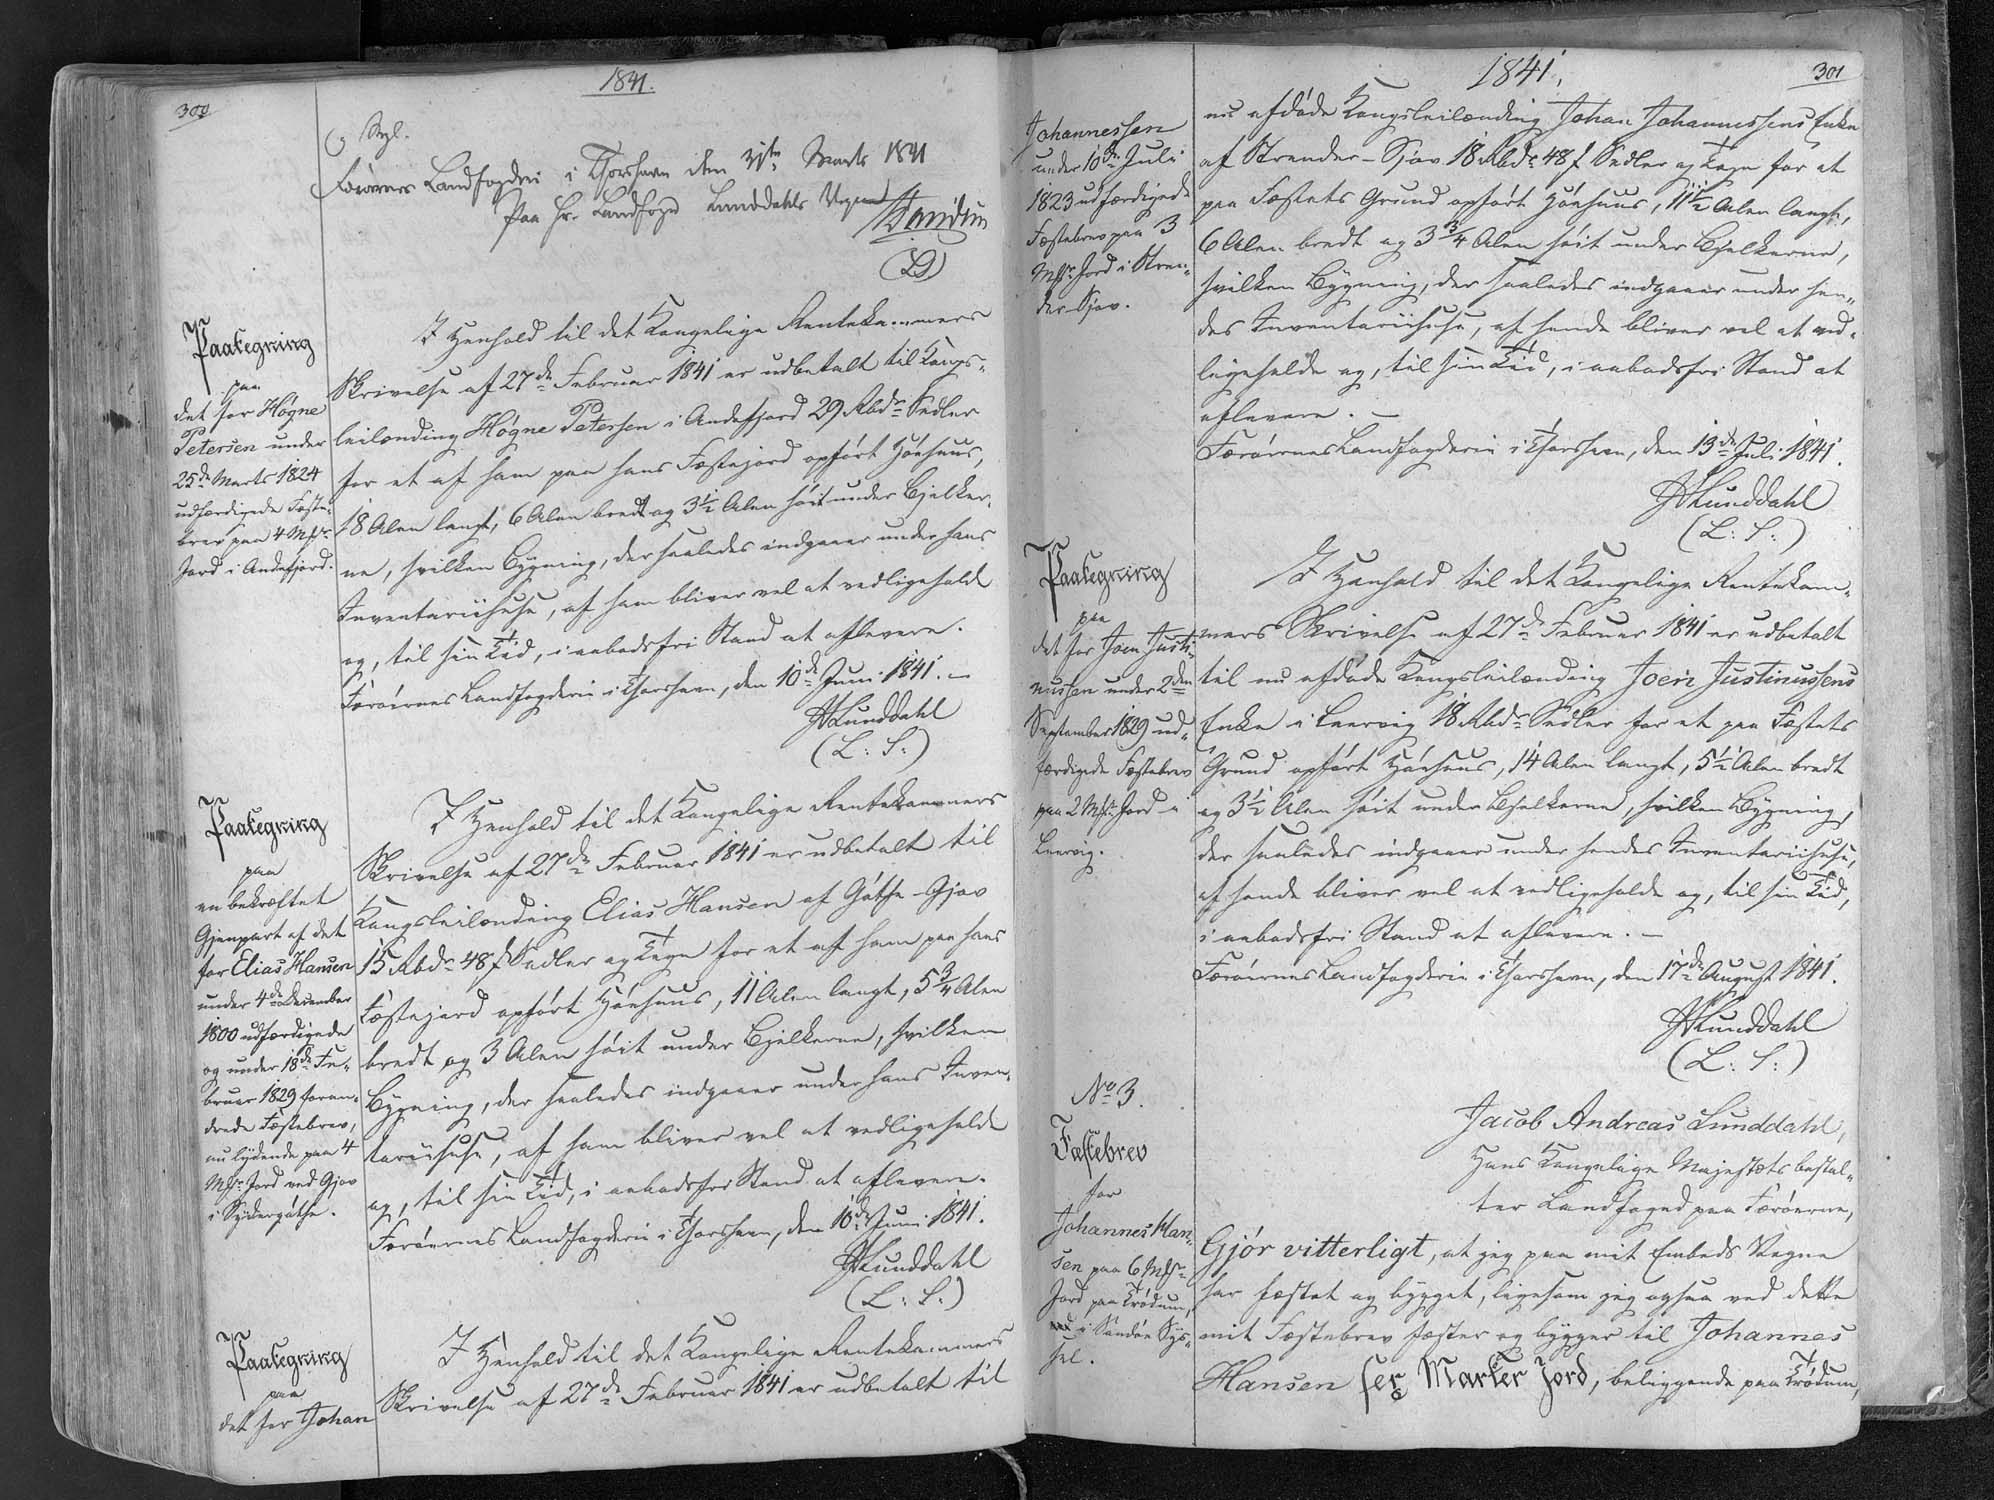 300
1841.
Færøernes Landfogderi i Thorshavn den 31te Marts 1841
Paa Hr. Landfoged Lunddahls Vegne
HDavidsen
(LS)
Paategning
paa
det for Høgne
Petersen under
25de Marts 1824
udfærdigede Fæste-
brev paa 4 Mkr
Jord i Andefjord.
I Henhold til det Kongelige Rentekammers
Skrivelse af 27de Februar 1841 er udbetalt til Kongs-
leilænding Høgne Petersen i Andefjord 29 Rbdr Sedler
for et af ham paa hans Fæstejord opført Høehuus,
18 Alen langt, 6 Alen bredt og 3½ Alen høit under Bjelker-
ne, hvilken Bygning, der saaledes indgaaer under hans
Inventariihuse, af ham bliver vel at vedligeholde
og, til sin Tid, i aabodsfri Stand at aflevere.
Færøernes Landfogderi i Thorshavn, den 10de Juni 1841. —
JALunddahl
(L: S:)
Paategning
paa
en bekræftet
Gjenpart af det
for Elias Hansen
under 4de December
1800 udfærdigede
og under 18de Fe-
bruar 1829 foran-
drede Fæstebrev,
nu lydende paa 4
Mkr Jord ved Gjov
i Sydergøthe.
I Henhold til det Kongelige Rentekammers
Skrivelse af 27de Februar 1841 er udbetalt til
Kongsleilænding Elias Hansen af Gøthe-Gjov
15 Rbdr 48 s Sedler og Tegn for et af ham paa hans
Fæstejord opført Høehuus, 11 Alen langt, 5¾ Alen
bredt og 3 Alen høit under Bjelkerne, hvilken
Bygning, der saaledes indgaaer under hans Inven-
tariihuse, af ham bliver vel at vedligeholde
og, til sin Tid, i aabodsfri Stand at aflevere.
Færøernes Landfogderi i Thorshavn, den 10de Juni 1841.
JALunddahl
(L: S:)
Paategning
paa
det for Johan
I Henhold til det Kongelige Rentekammers
Skrivelse af 27de Februar 1841 er udbetalt til
1841.
301
Johannessen
under 10de Juli
1823 udfærdigede
Fæstebrev paa 3
Mkr Jord i Stren-
der-Sjov.
nu afdøde Kongsleilænding Johan Johannessens Enke
af Strender-Sjov 18 Rbdr 48 s Sedler og Tegn for et
paa Fæstets Grund opført Høehuus, 11½ Alen langt,
6 Alen bredt og 3¾ Alen høit under Bjelkerne,
hvilken Bygning, der saaledes indgaaer under hen-
des Inventariihuse, af hende bliver vel at ved-
ligeholde og, til sin Tid, i aabodsfri Stand at
aflevere. —
Færøernes Landfogderi i Thorshavn, den 13de Juli 1841.
JALunddahl
(L: S:)
Paategning
paa
det for Joen Justi-
nussen under 2den
September 1829 ud-
færdigede Fæstebrev
paa 2 Mkr Jord i
Leervig.
I Henhold til det Kongelige Rentekam-
mers Skrivelse af 27de Februar 1841 er udbetalt
til nu afdøde Kongsleilænding Joen Justinussens
Enke i Leervig 18 Rbdr Sedler for et paa Fæstets
Grund opført Høehuus, 14 Alen langt, 5½ Alen bredt
og 3½ Alen høit under Bjelkerne, hvilken Bygning,
der saaledes indgaaer under hendes Inventariihuse,
af hende bliver vel at vedligeholde og, til sin Tid,
i aabodsfri Stand at aflevere. —
Færøernes Landfogderi i Thorshavn, den 17de August 1841.
JALunddahl
(L: S:)
No 3.
Fæstebrev
for
Johannes Han-
sen paa 6 Mkr
Jord paa Trødum,
i Sandøe Sys-
sel.
Jacob Andreas Lunddahl,
Hans Kongelige Majestæts bestal-
ter Landfoged paa Færøerne,
Gjør vitterligt, at jeg paa mit Embeds Vegne
har fæstet og bygget, ligesom jeg ogsaa ved dette
mit Fæstebrev fæster og bygger til Johannes
Hansen sex Marker Jord, beliggende paa Trødum,